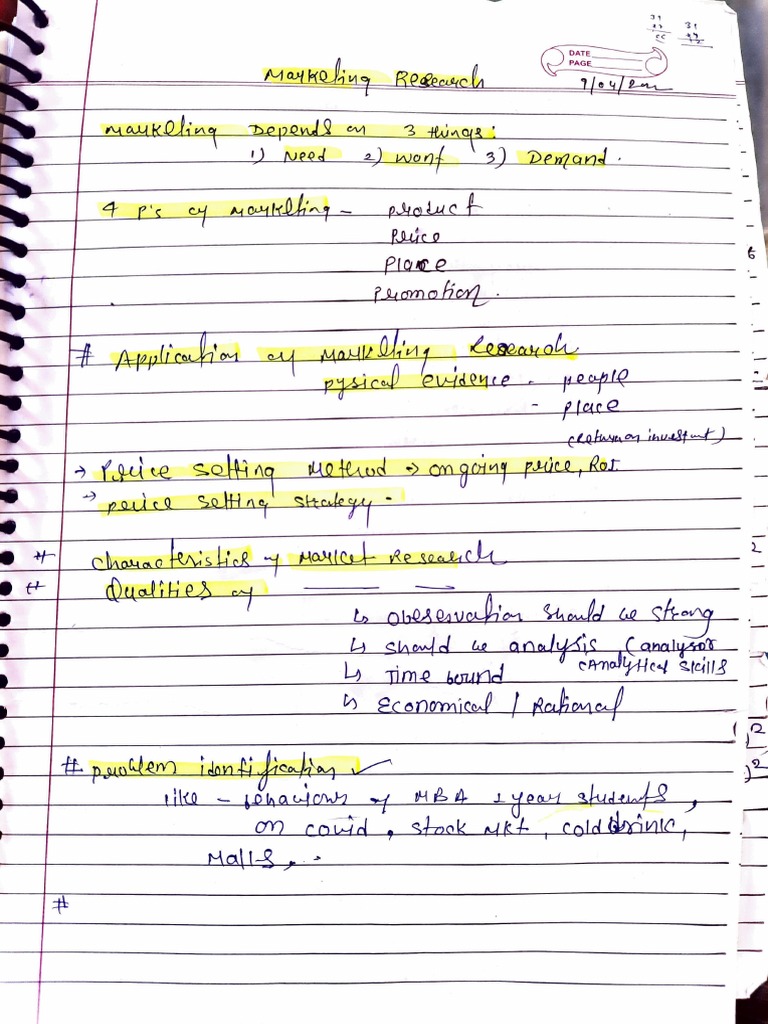 DATE
PAGE
Marketing Research
Marketing Depends on 3 things:
1) Need 2) Want 3) Demand.
4 P's of Marketing - Product
Price
Place
Promotion.
# Application of Marketing Research
pysical evidence - people
- place
(Return on investment)
→ Price setting Method → ongoing price, ROI
→ price setting strategy -
# Characteristics of Market Research
# Qualities of
↳ Observation should be strong
↳ should be analysis (analysor
(Analytical skills
↳ Time bound
↳ Economical / Rational
# problem identification ✓
like - behaviour of MBA 1 year students,
on covid, stock mkt, cold drink,
Malls, ..
#